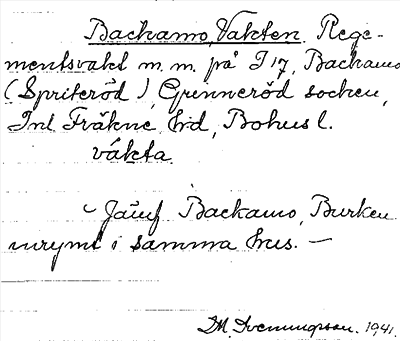 Backamo, Vakten. Rege-
mentsvakt m.m. på I 17, Backamo
(Spriteröd), Grinneröd socken,
Inl. Fräkne hd, Bohusl.
väkta
Jämf Backamo, Burken
inrymt i samma hus. —
M. Svenungsson. 1941.